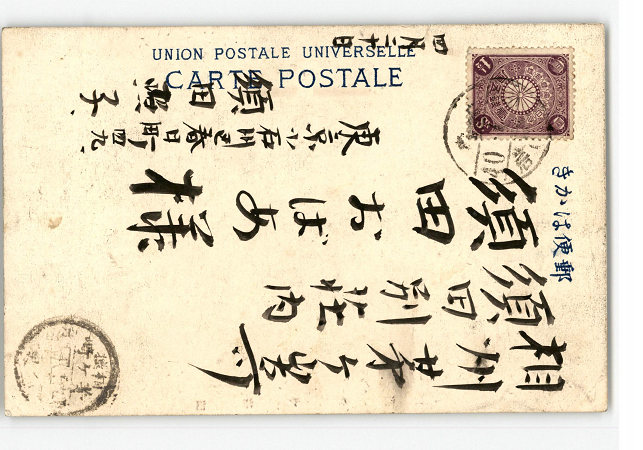 UNION POSTALE UNIVERSELLE
CARTE POSTALE
郵便はかき
相州茅ヶ崎
須田別荘内
須田おばあ様
東京小石川区春日町四九
須田
子
四月二十日